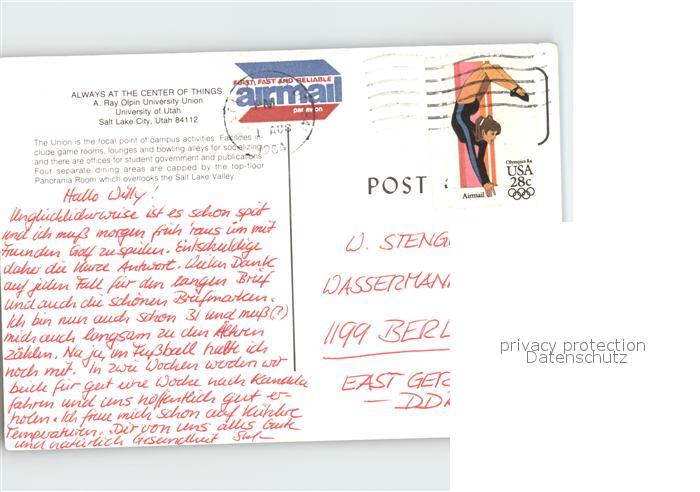 ALWAYS AT THE CENTER OF THINGS.
A. Ray Olpin University Union
University of Utah
Salt Lake City, Utah 84112
The Union is the focal point of campus activities. Facilities in-
clude game rooms, lounges and bowling alleys for socializing
and there are offices for student government and publications.
Four separate dining areas are capped by the top-floor
Panorama Room which overlooks the Salt Lake Valley.
FIRST, FAST AND RELIABLE
airmail
par avion
PM
1 AUG
Olympics 84
USA
28c
Airmail
POST
Hallo Willy!
Unglücklicherweise ist es schon spät
und ich muß morgen früh 'raus um mit
Freunden Golf zu spielen. Entschuldige
daher die kurze Antwort. Vielen Dank
auf jeden Fall für den langen Brief
und auch die schönen Briefmarken.
Ich bin nun auch schon 31 und muß(?)
mich auch langsam zu den Älteren
zählen. Na ja, im Fußball halte ich
noch mit. In zwei Wochen werden wir
beide für gut eine Woche nach Kanada
fahren und uns hoffentlich gut er-
holen. Ich freue mich schon auf kühlere
Temperaturen. Dir von uns alles Gute
und natürlich Gesundheit
W. STENG
WASSERMANN
1199 BERL
EAST GER
— DDR
privacy protection
Datenschutz